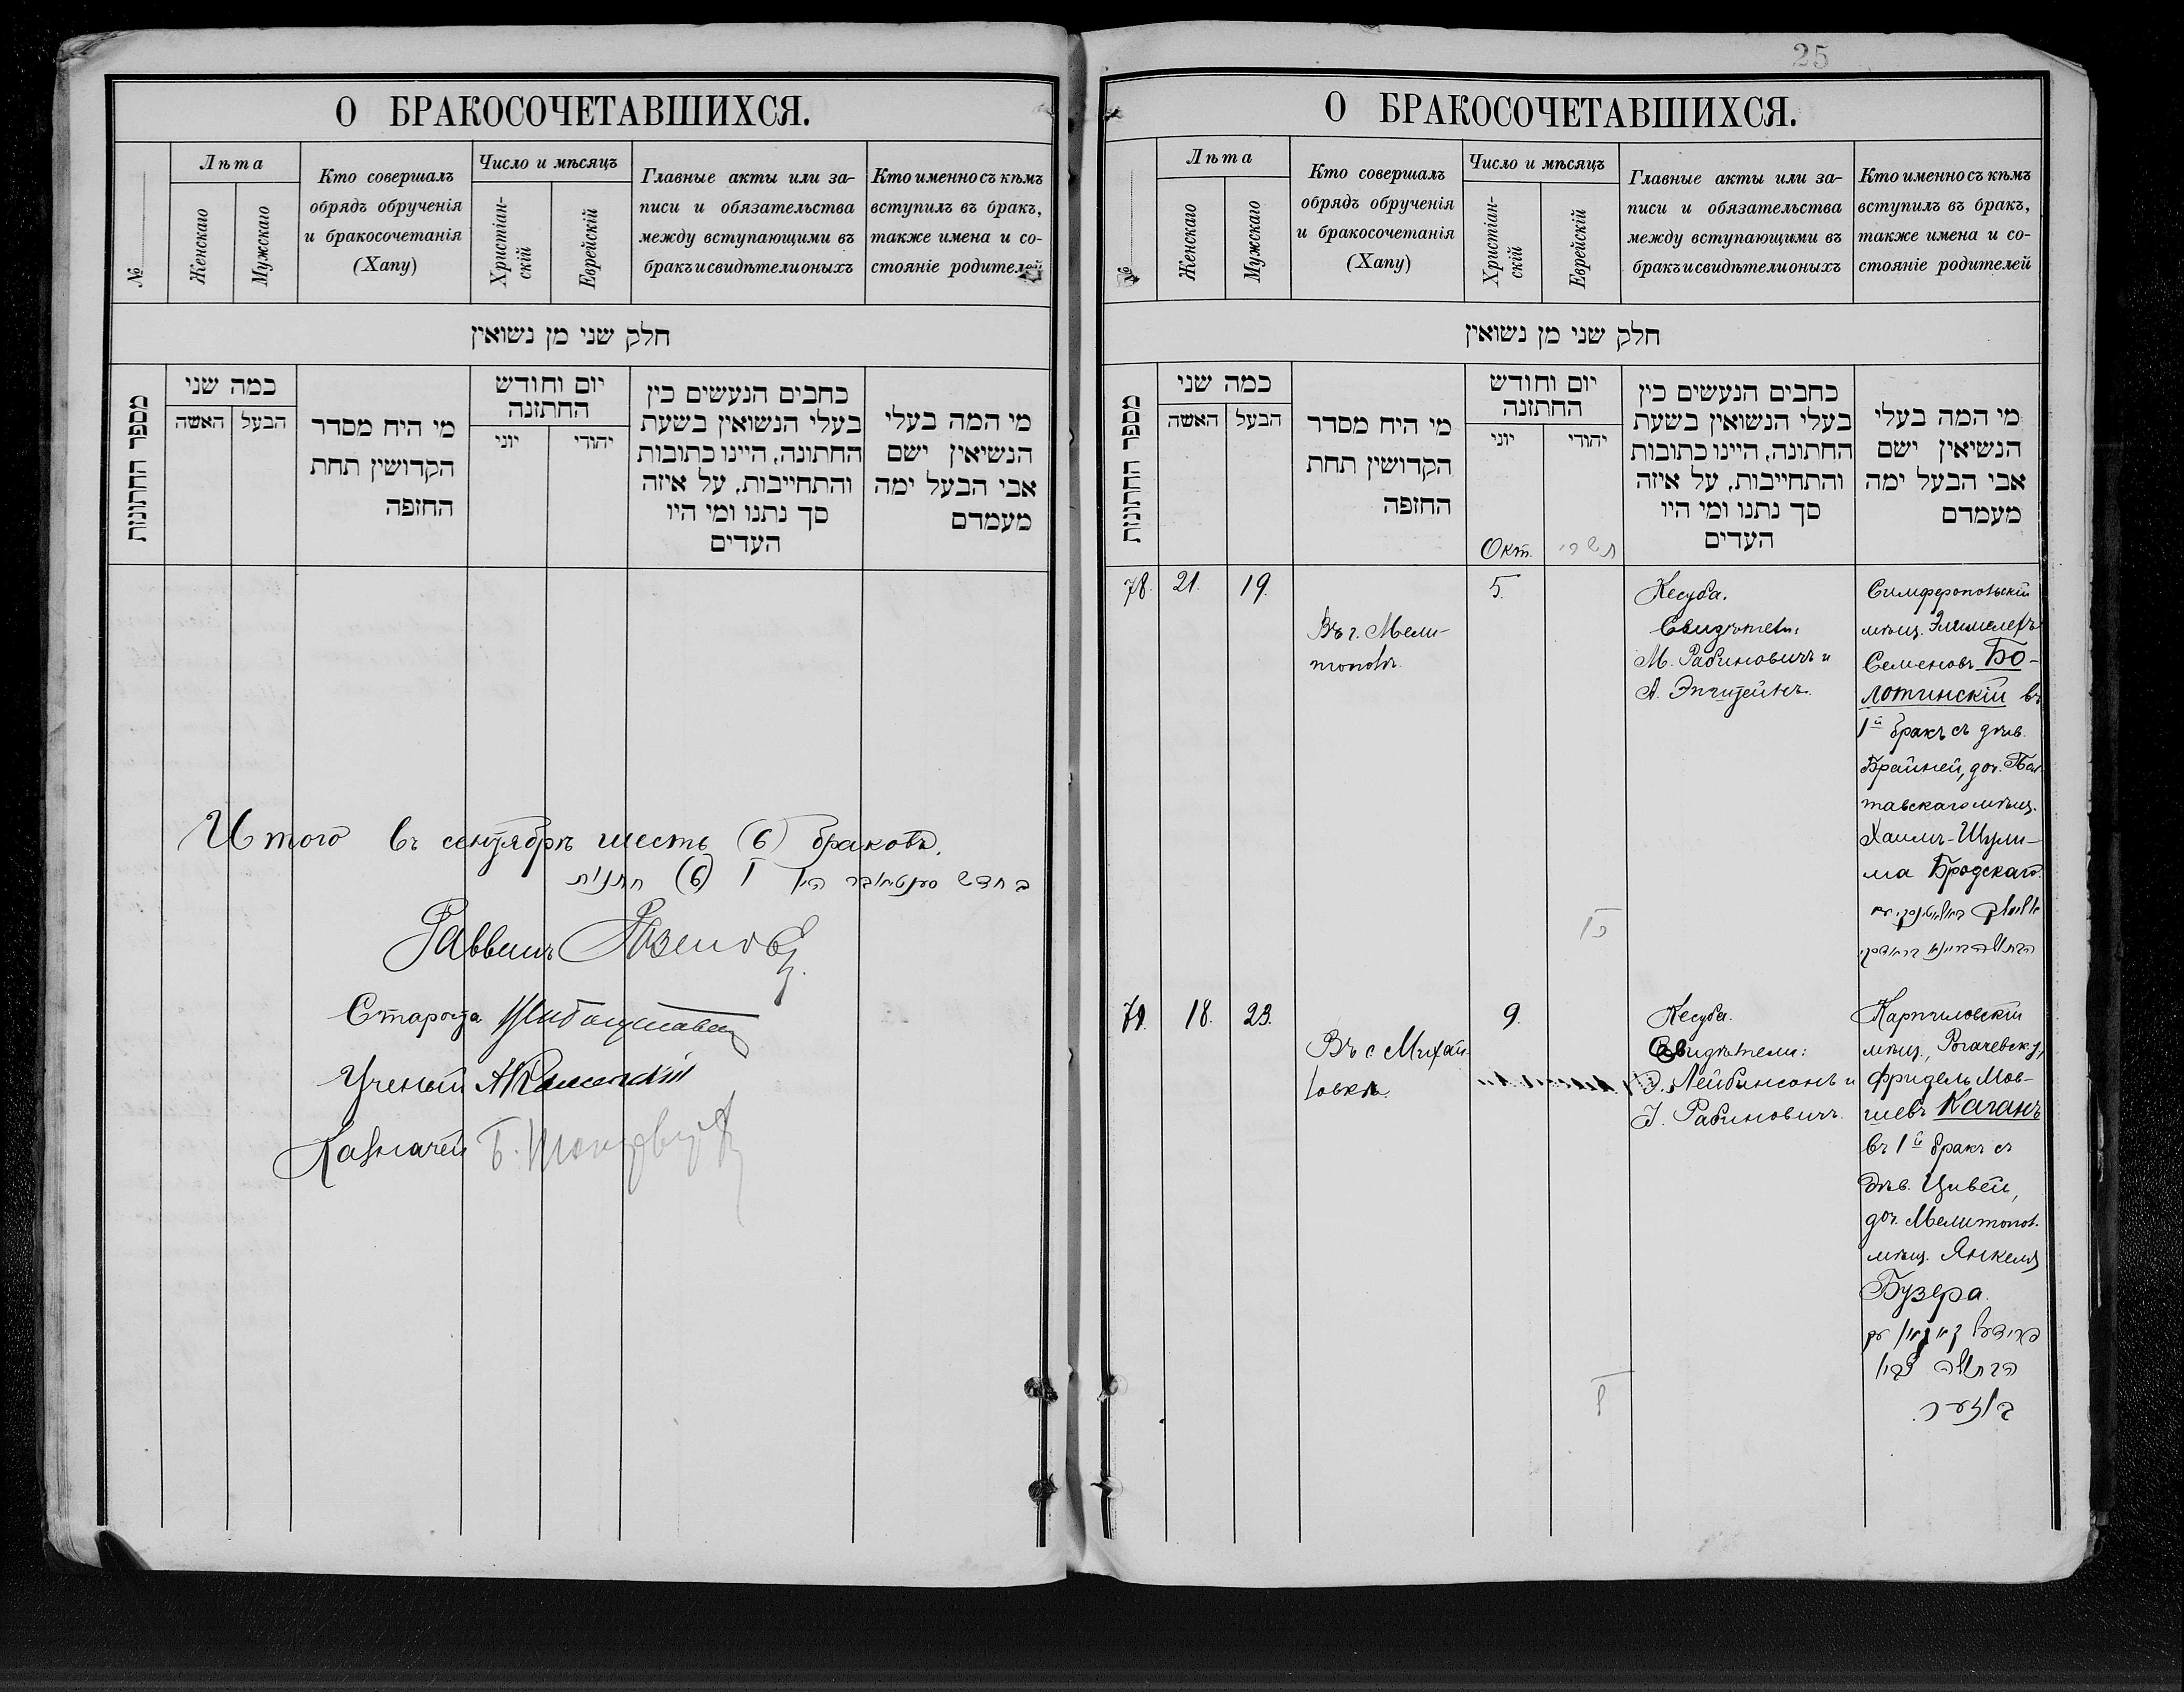 О БРАКОСОЧЕТАВШИХСЯ.
№
Лѣта
Женскаго
Мужскаго
Кто совершалъ
обрядъ обрученія
и бракосочетанія
(Хапу)
Число и мѣсяцъ
Христіан-
скій
Еврейскій
Главные акты или за-
писи и обязательства
между вступающими въ
бракъ и свидѣтели оныхъ
Кто именно съ кѣмъ
вступилъ въ бракъ,
также имена и со-
стояніе родителей
חלק שני מן נשואין
מספר החתונות
כמה שני
האשה
הבעל
מי היח מסדר
הקדושין תחת
החזפה
יום וחודש
החתזנה
יוני
יהודי
כחבים הנעשים כין
בעלי הנשואין בשעת
החתונה, היינו כתובות
והתחייבות, על איזה
סך נתנו ומי היו
העדים
מי המה בעלי
הנשיאין ישם
אבי הבעל ימה
מעמדם
Итого въ сентябрѣ шесть (6) браковъ.
(6) חתנות
Раввинъ
Староста
Ученый
Казначей
25
О БРАКОСОЧЕТАВШИХСЯ.
№
Лѣта
Женскаго
Мужскаго
Кто совершалъ
обрядъ обрученія
и бракосочетанія
(Хапу)
Число и мѣсяцъ
Христіан-
скій
Еврейскій
Главные акты или за-
писи и обязательства
между вступающими въ
бракъ и свидѣтели оныхъ
Кто именно съ кѣмъ
вступилъ въ бракъ,
также имена и со-
стояніе родителей
חלק שני מן נשואין
מספר החתונות
כמה שני
האשה
הבעל
מי היח מסדר
הקדושין תחת
החזפה
יום וחודש
החתזנה
יוני
יהודי
Окт.
תשרי
כחבים הנעשים כין
בעלי הנשואין בשעת
החתונה, היינו כתובות
והתחייבות, על איזה
סך נתנו ומי היו
העדים
מי המה בעלי
הנשיאין ישם
אבי הבעל ימה
מעמדם
78. 21. 19.
Въ г. Мели-
тополѣ.
5.
Кесуба.
Свидѣтели:
М. Рабиновичъ и
А. Эпштейнъ.
Симферопольскій
мѣщ. Элимелехъ
Семеновъ Бо-
лотинскій въ
1й бракъ съ дѣв.
Брайней, доч. Пол-
тавскаго мѣщ.
Хаимъ-Шули-
ма Бродскаго.
79. 18. 23.
Въ с Михай-
ловкѣ.
9.
Кесуба.
Свидѣтели:
Э. Лейбинсонъ и
І. Рабиновичъ.
Карпиловскій
мѣщ., Рогачевск. у,
Фридель Мов-
шевъ Каганъ
въ 1й бракъ съ
дѣв. Цивей,
доч. Мелитопол.
мѣщ. Янкеля
Бузера.